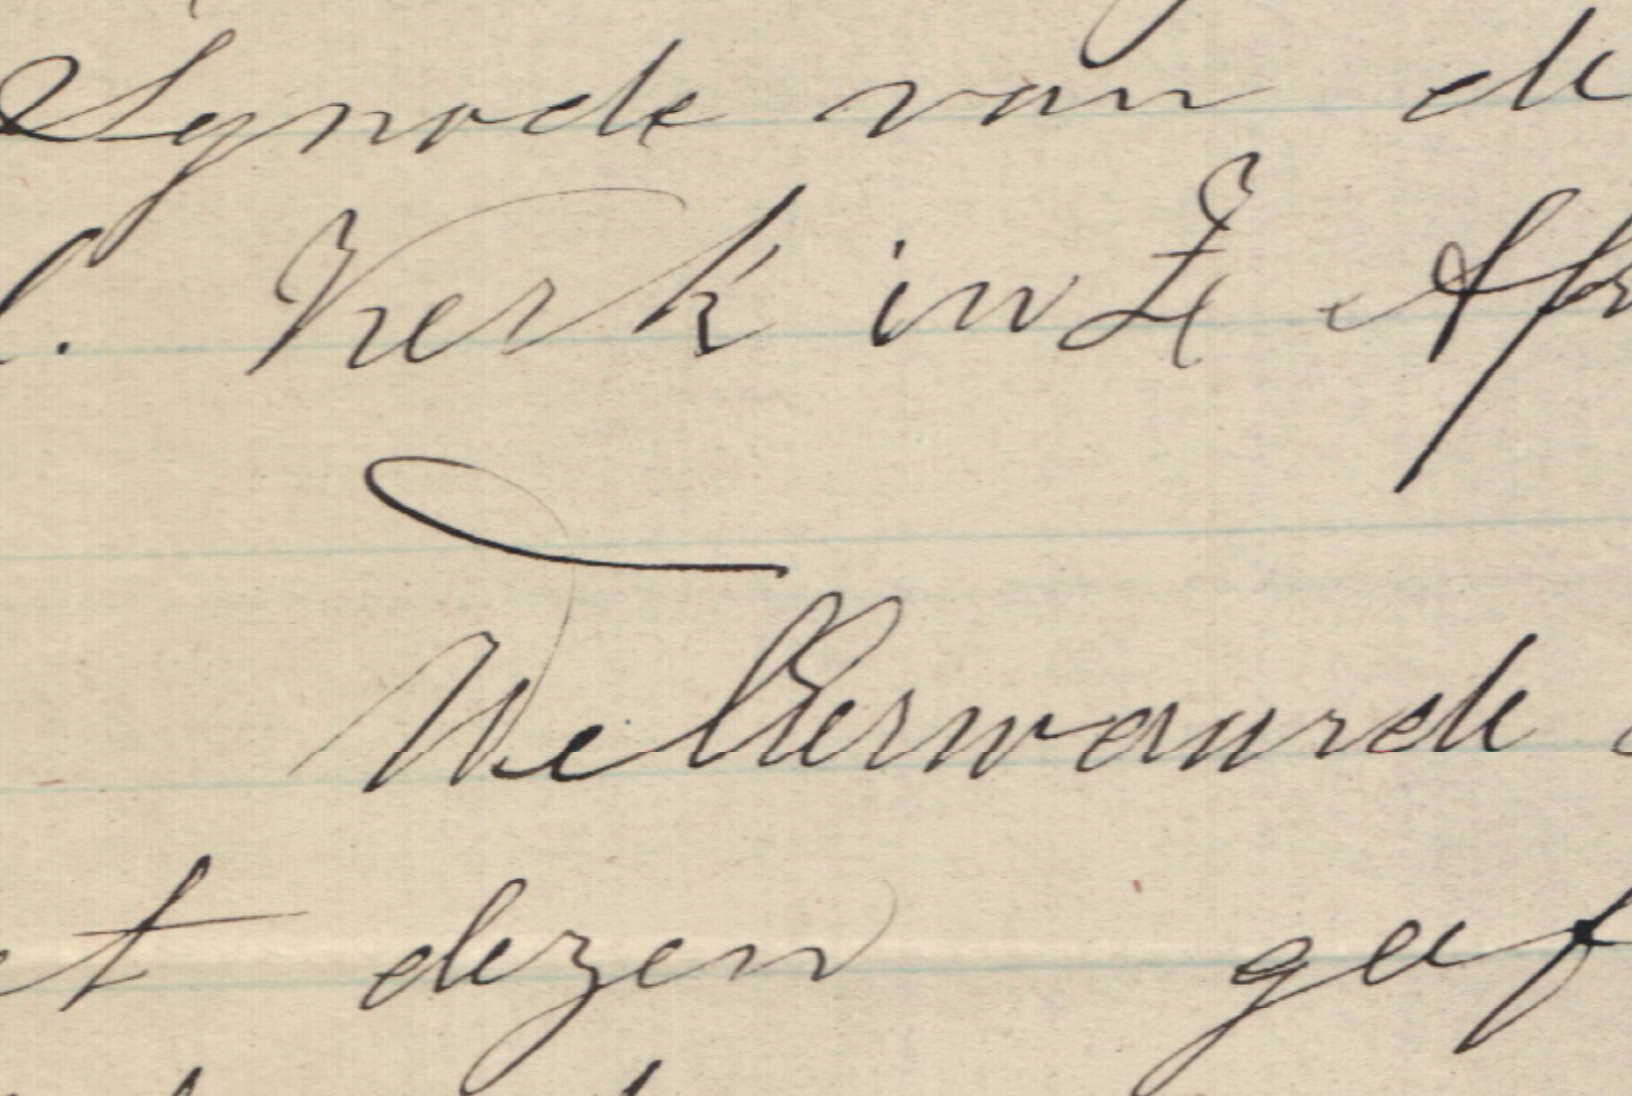 Synode van de
l. Kerk in Z. Afr
WelEerwaarde
et dezen geef